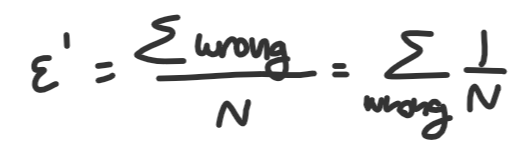 ε' = Σ wrong / N = Σ wrong 1/N